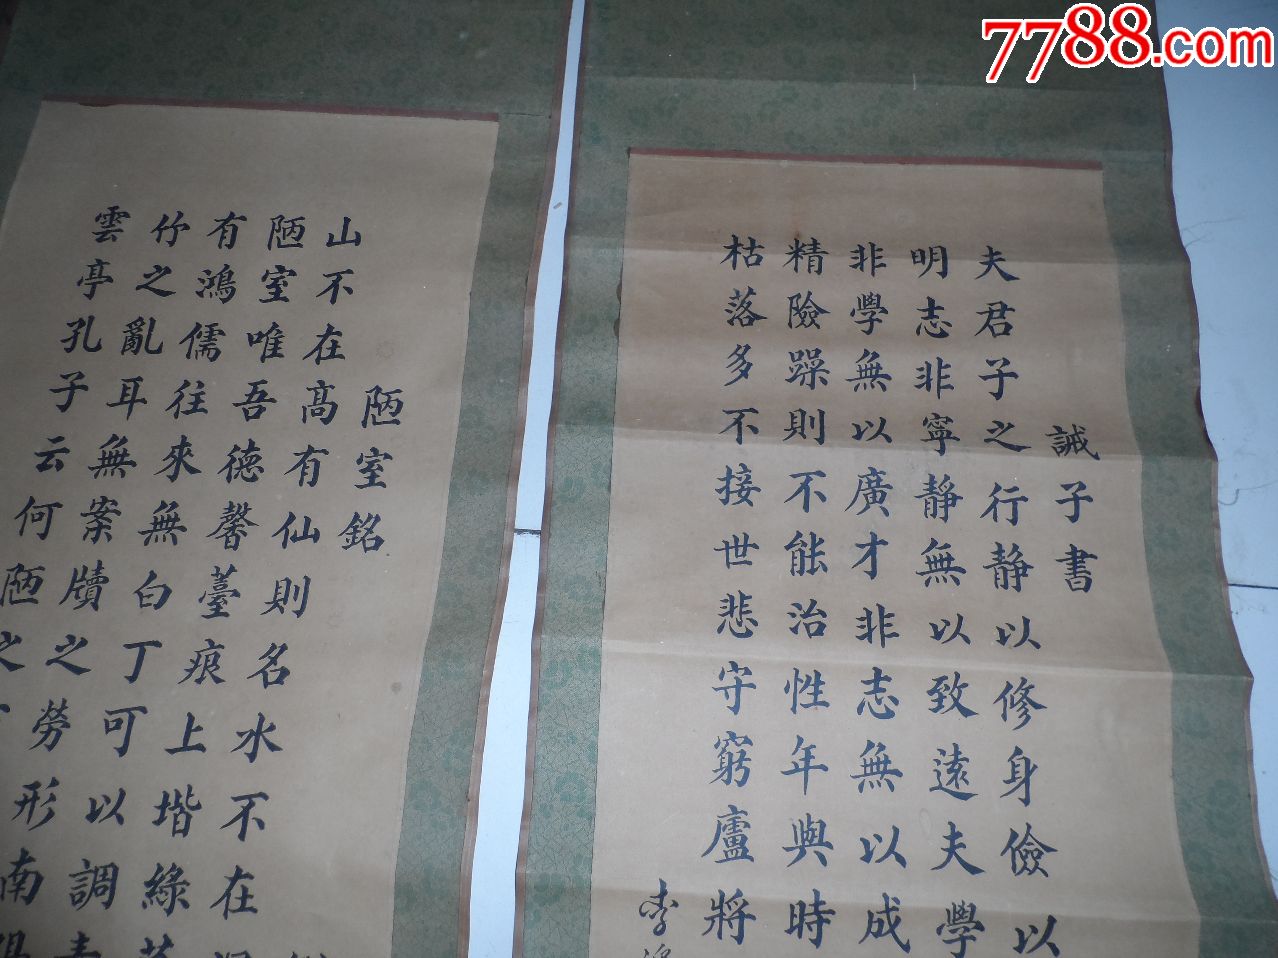 7788.com
誡子書
夫君子之行静以修身儉以
明志非寧静無以致遠夫學
非學無以廣才非志無以成
精險躁則不能治性年與時
枯落多不接世悲守窮廬將
李
陋室銘
山不在高有仙則名水不在
陋室唯吾德馨薹痕上堦綠
有鴻儒往來無白丁可以調素
竹之亂耳無案牘之勞形南
雲亭孔子云何陋之